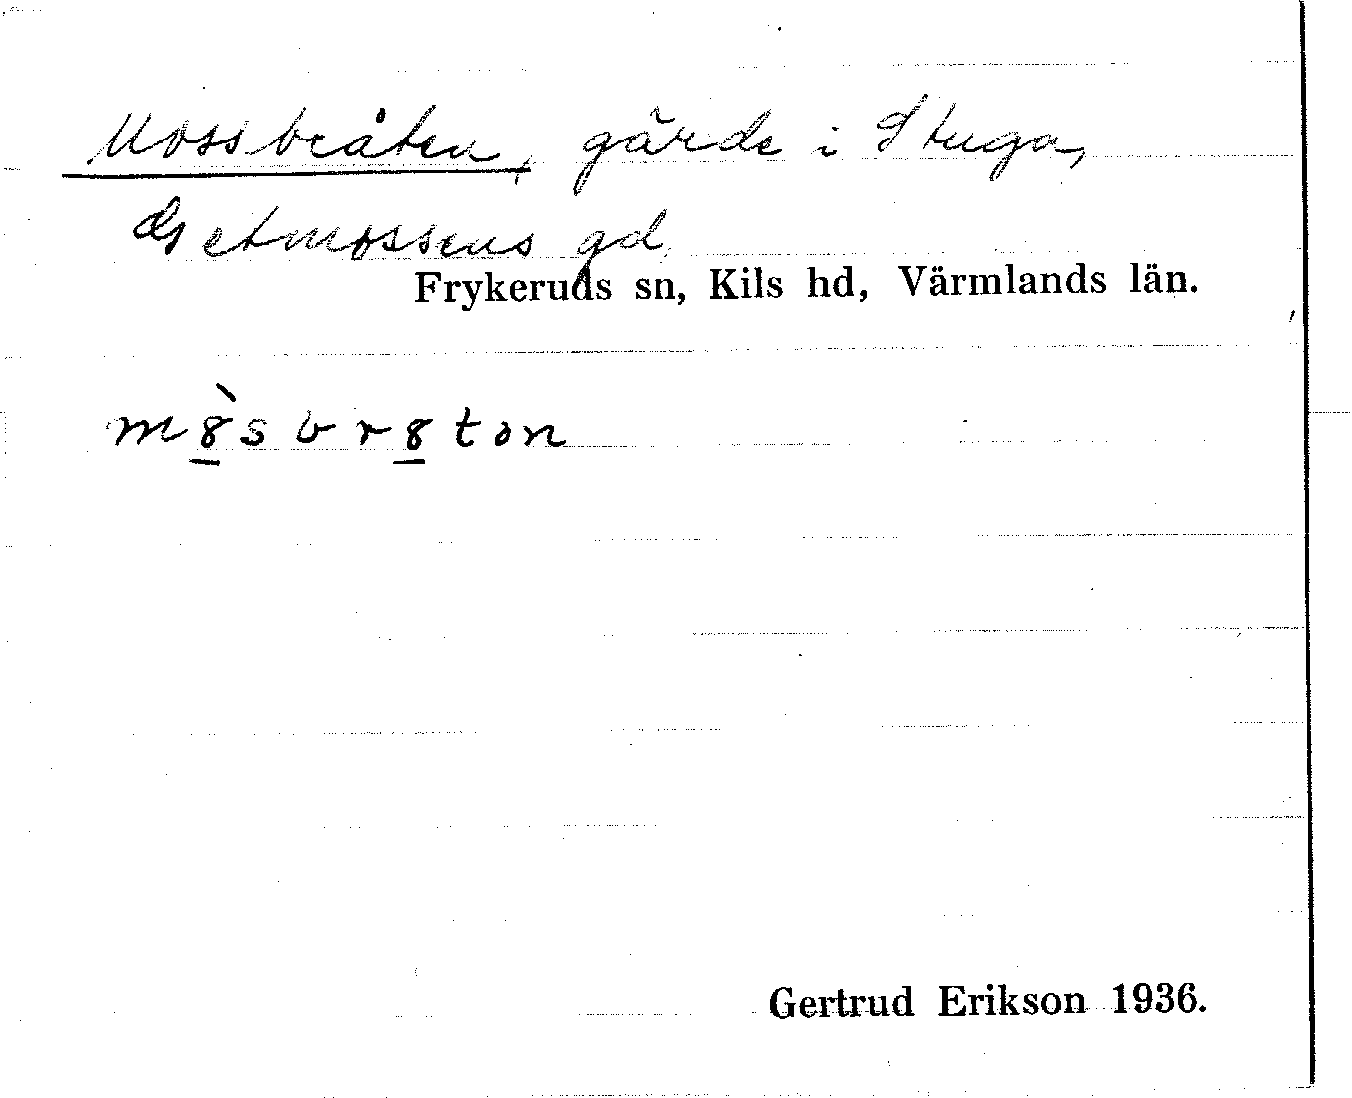 Mossbråten, gärde i Stuga,
Getmossens gd.
Frykeruds sn, Kils hd, Värmlands län.
mò̱8sbr8̱ton
Gertrud Erikson 1936.